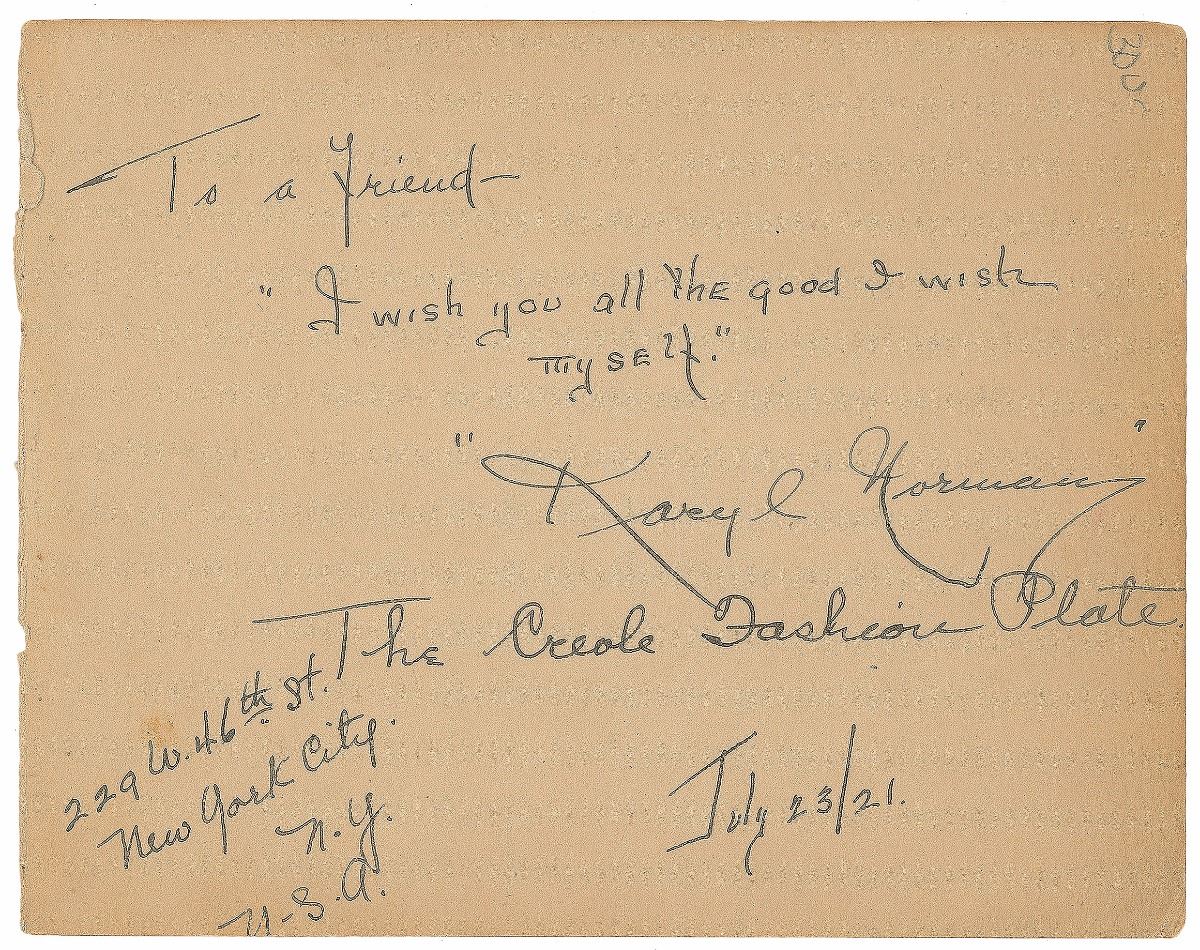 To a friend
" I wish you all the good I wish
myself."
" Karyl Norman "
The Creole Fashion Plate.
229 W. 46th St.
New York City.
N.Y.
U.S.A.
July 23/21.